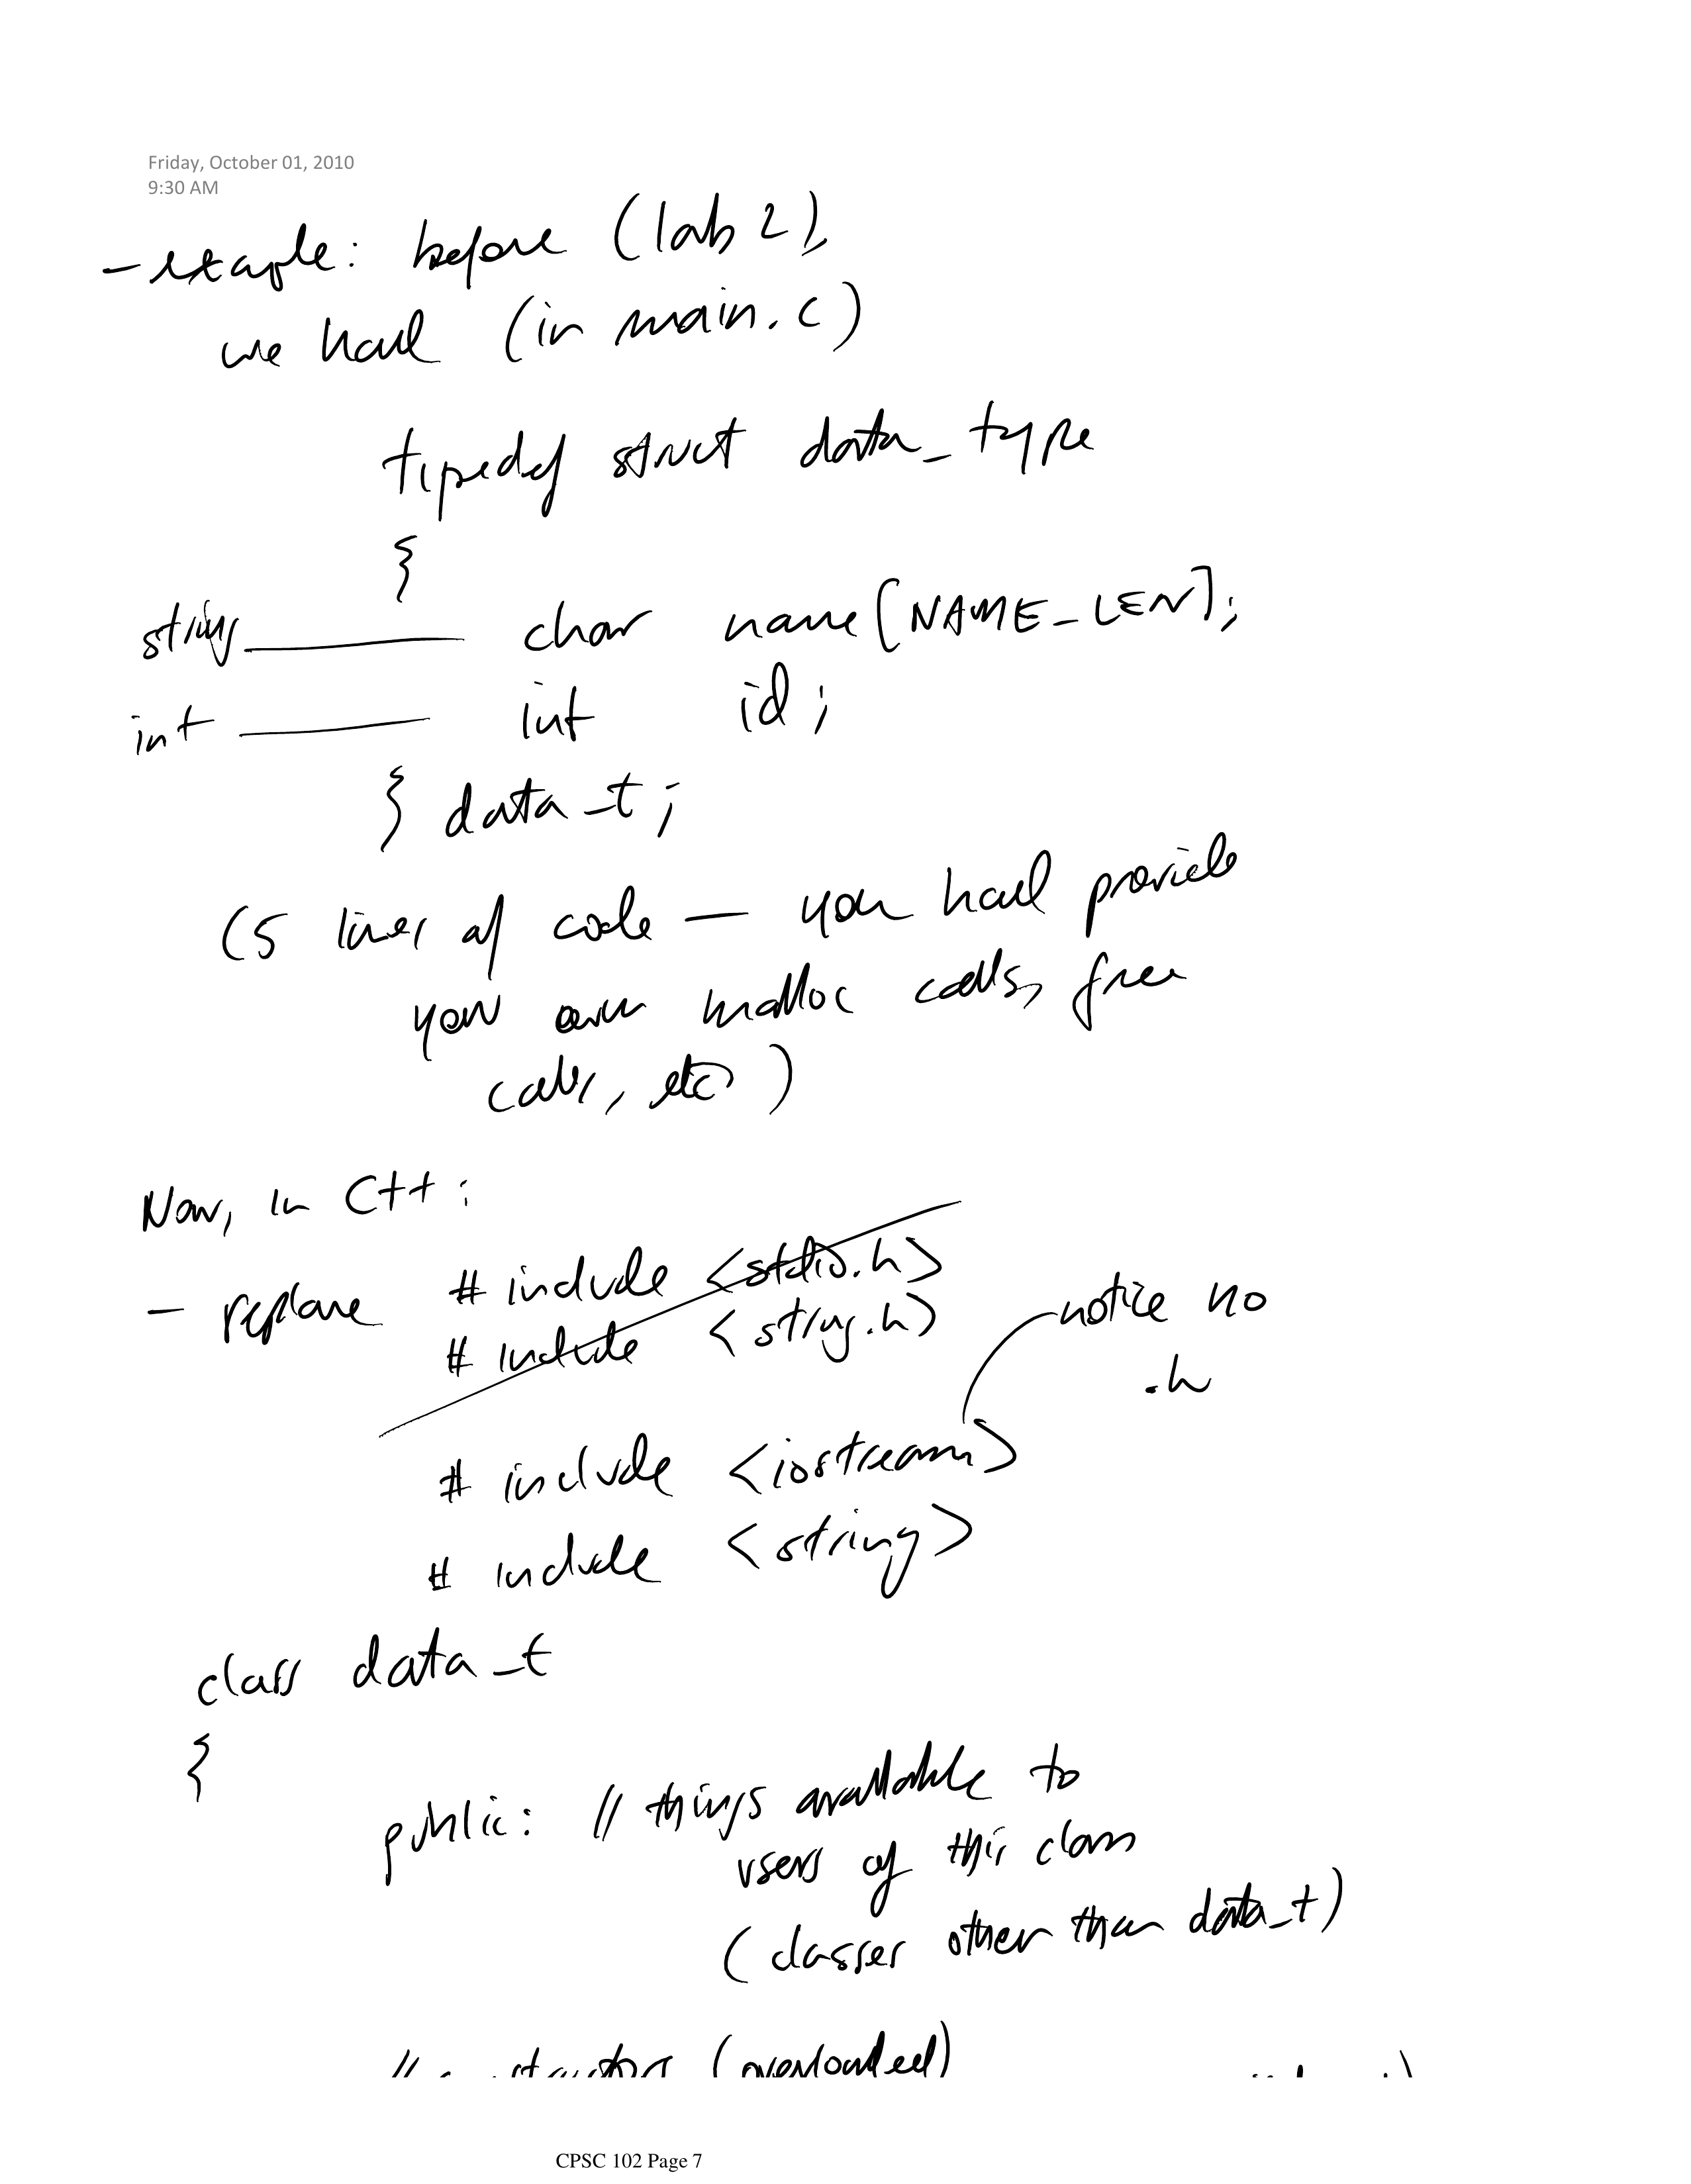 Friday, October 01, 2010
9:30 AM
- example: before (lab 2),
we had (in main.c)
typedef struct data_type
{
string char name[NAME_LEN];
int int id;
} data_t;
(5 lines of code — you had provide
your own malloc calls, free
calls, etc)
Now, in C++:
- replace # include <stdio.h>
# include <string.h>
notice no
.h
# include <iostream>
# include <string>
class data_t
{
public: // things available to
users of this class
(classes other than data_t)
// constructors (overloaded)
CPSC 102 Page 7